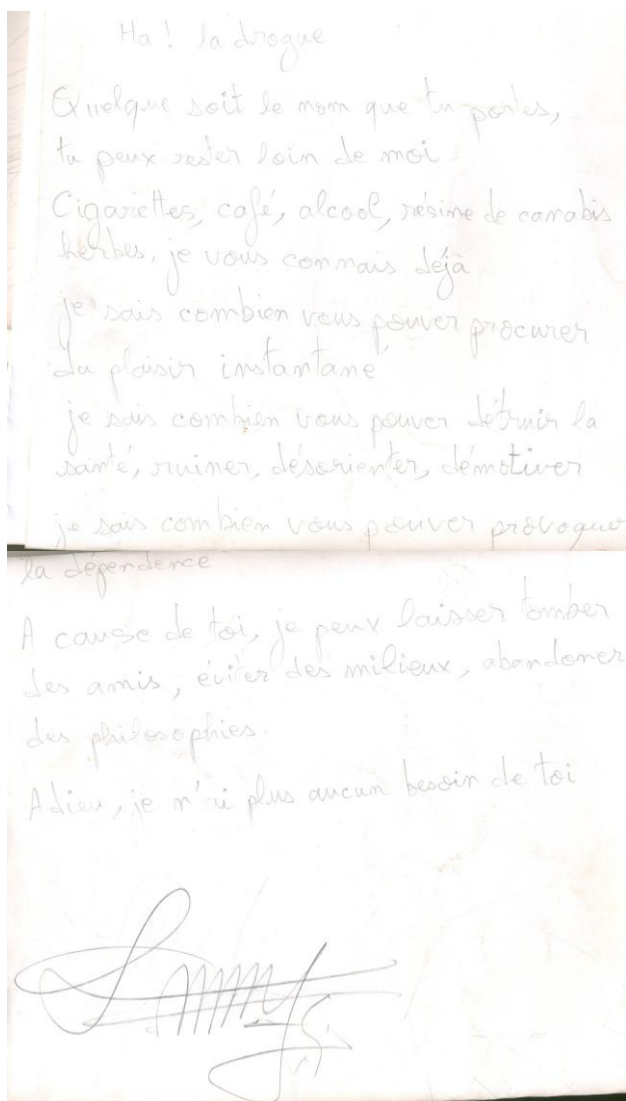 Ha ! la drogue
Quelque soit le nom que tu portes,
tu peux rester loin de moi
Cigarettes, café, alcool, résine de canabis
herbes, je vous connais déjà
je sais combien vous pouver procurer
du plaisir instantané
je sais combien vous pouver détruir la
santé, ruiner, désorienter, démotiver
je sais combien vous pouver provoquer
la dépendence
A cause de toi, je peux laisser tomber
des amis, éviter des milieux, abandoner
des philosophies.
Adieu, je n'ai plus aucun besoin de toi